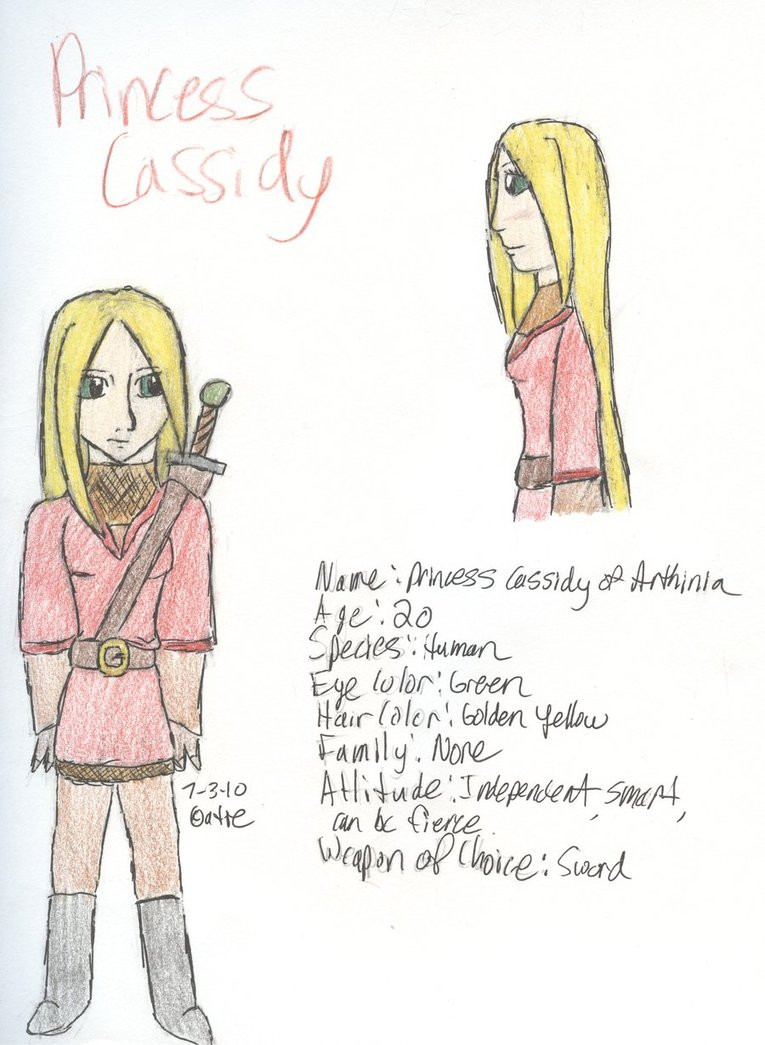 Princess
Cassidy
Name: Princess Cassidy of Arthinia
Age: 20
Species: Human
Eye Color: Green
Hair Color: Golden Yellow
Family: None
Attitude: Independent, smart,
can be fierce.
Weapon of Choice: Sword
7-3-10